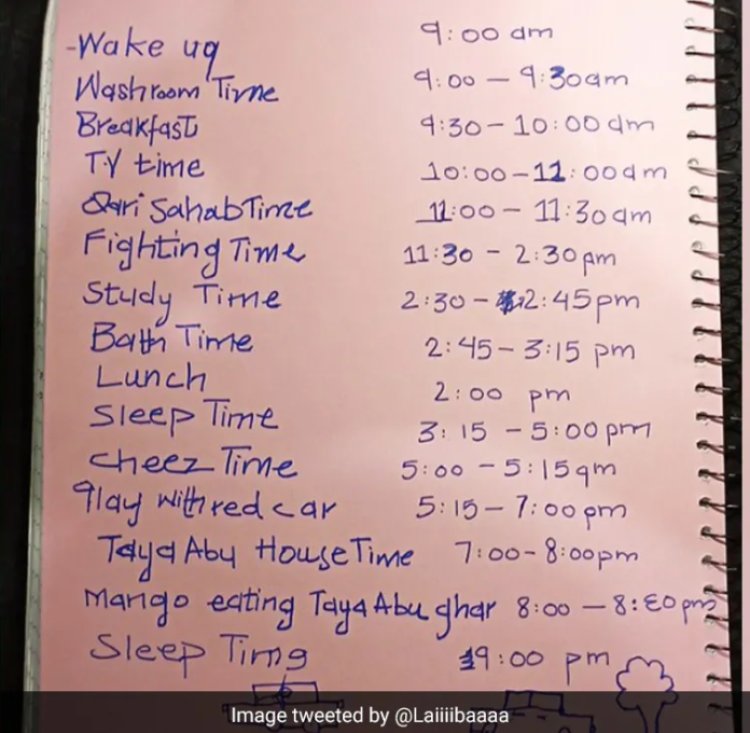 -Wake uq 9:00 am
Washroom Time 9:00 – 9:30am
Breakfast 9:30 – 10:00 am
T.V time 10:00 – 11:00am
Qari Sahab Time 11:00 – 11:30am
Fighting Time 11:30 - 2:30pm
Study Time 2:30 – 2:45pm
Bath Time 2:45 – 3:15 pm
Lunch 2:00 pm
Sleep Time 3:15 – 5:00pm
Cheez Time 5:00 – 5:15qm
Play with red car 5:15 – 7:00pm
Taya Abu House Time 7:00 – 8:00pm
Mango eating Taya Abu ghar 8:00 – 8:30pm
Sleep Timg 9:00 pm
Image tweeted by @Laiiiibaaaa